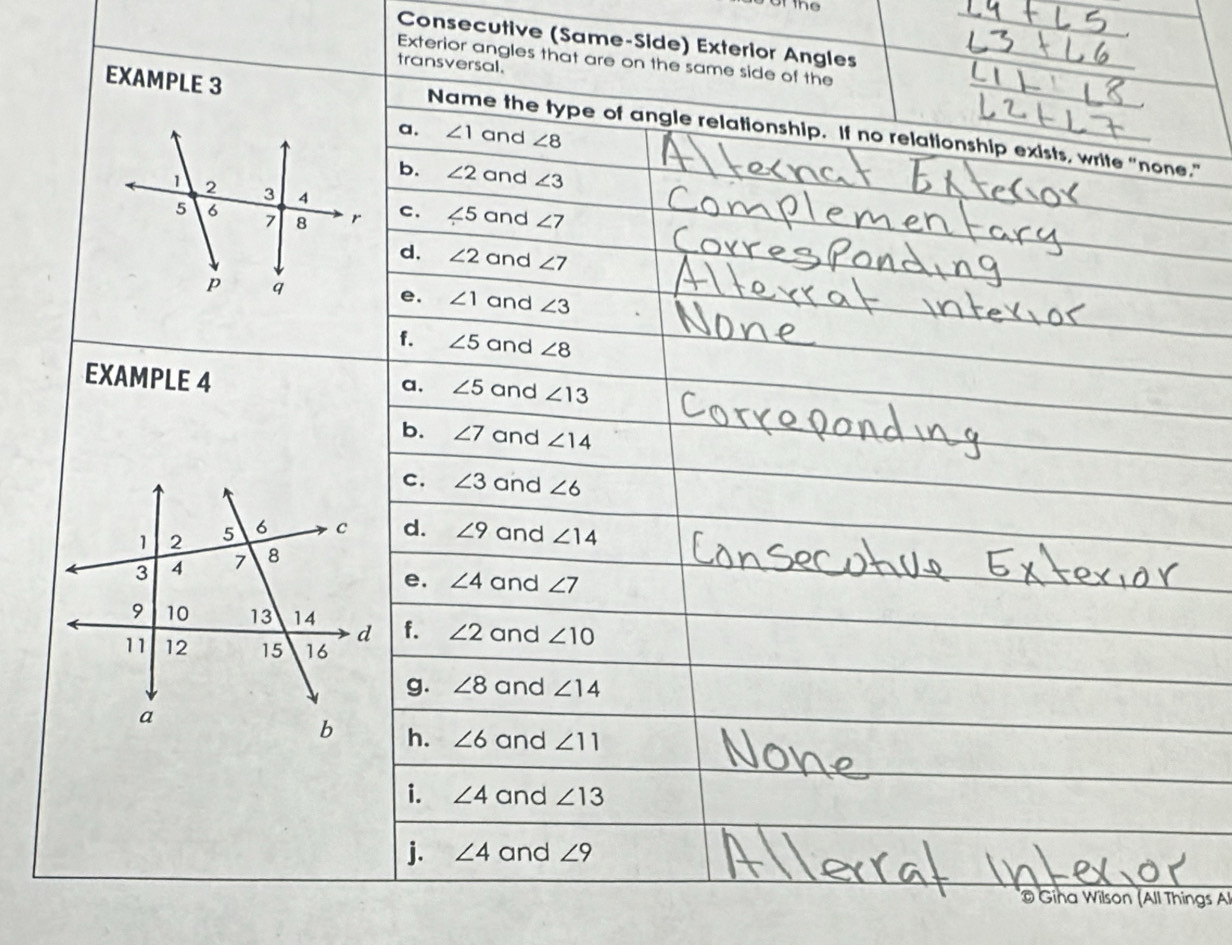 of the
L4 + L5
Consecutive (Same-Side) Exterior Angles
L3 + L6
Exterior angles that are on the same side of the
transversal.
L1 + L8
L2 + L7
EXAMPLE 3
Name the type of angle relationship. If no relationship exists, write "none."
a. ∠1 and ∠8 Alternat Exterior
b. ∠2 and ∠3 Complementary
c. ∠5 and ∠7 Corresponding
d. ∠2 and ∠7 Alterrat interior
e. ∠1 and ∠3 None
f. ∠5 and ∠8
1 2 3 4
5 6 7 8 r
p q
EXAMPLE 4
a. ∠5 and ∠13 Correponding
b. ∠7 and ∠14
c. ∠3 and ∠6
d. ∠9 and ∠14 Consecutive Exterior
e. ∠4 and ∠7
f. ∠2 and ∠10
g. ∠8 and ∠14
h. ∠6 and ∠11 None
i. ∠4 and ∠13
j. ∠4 and ∠9 Allerrat Interior
1 2 5 6 c
3 4 7 8
9 10 13 14
11 12 15 16 d
a b
© Gina Wilson (All Things Al